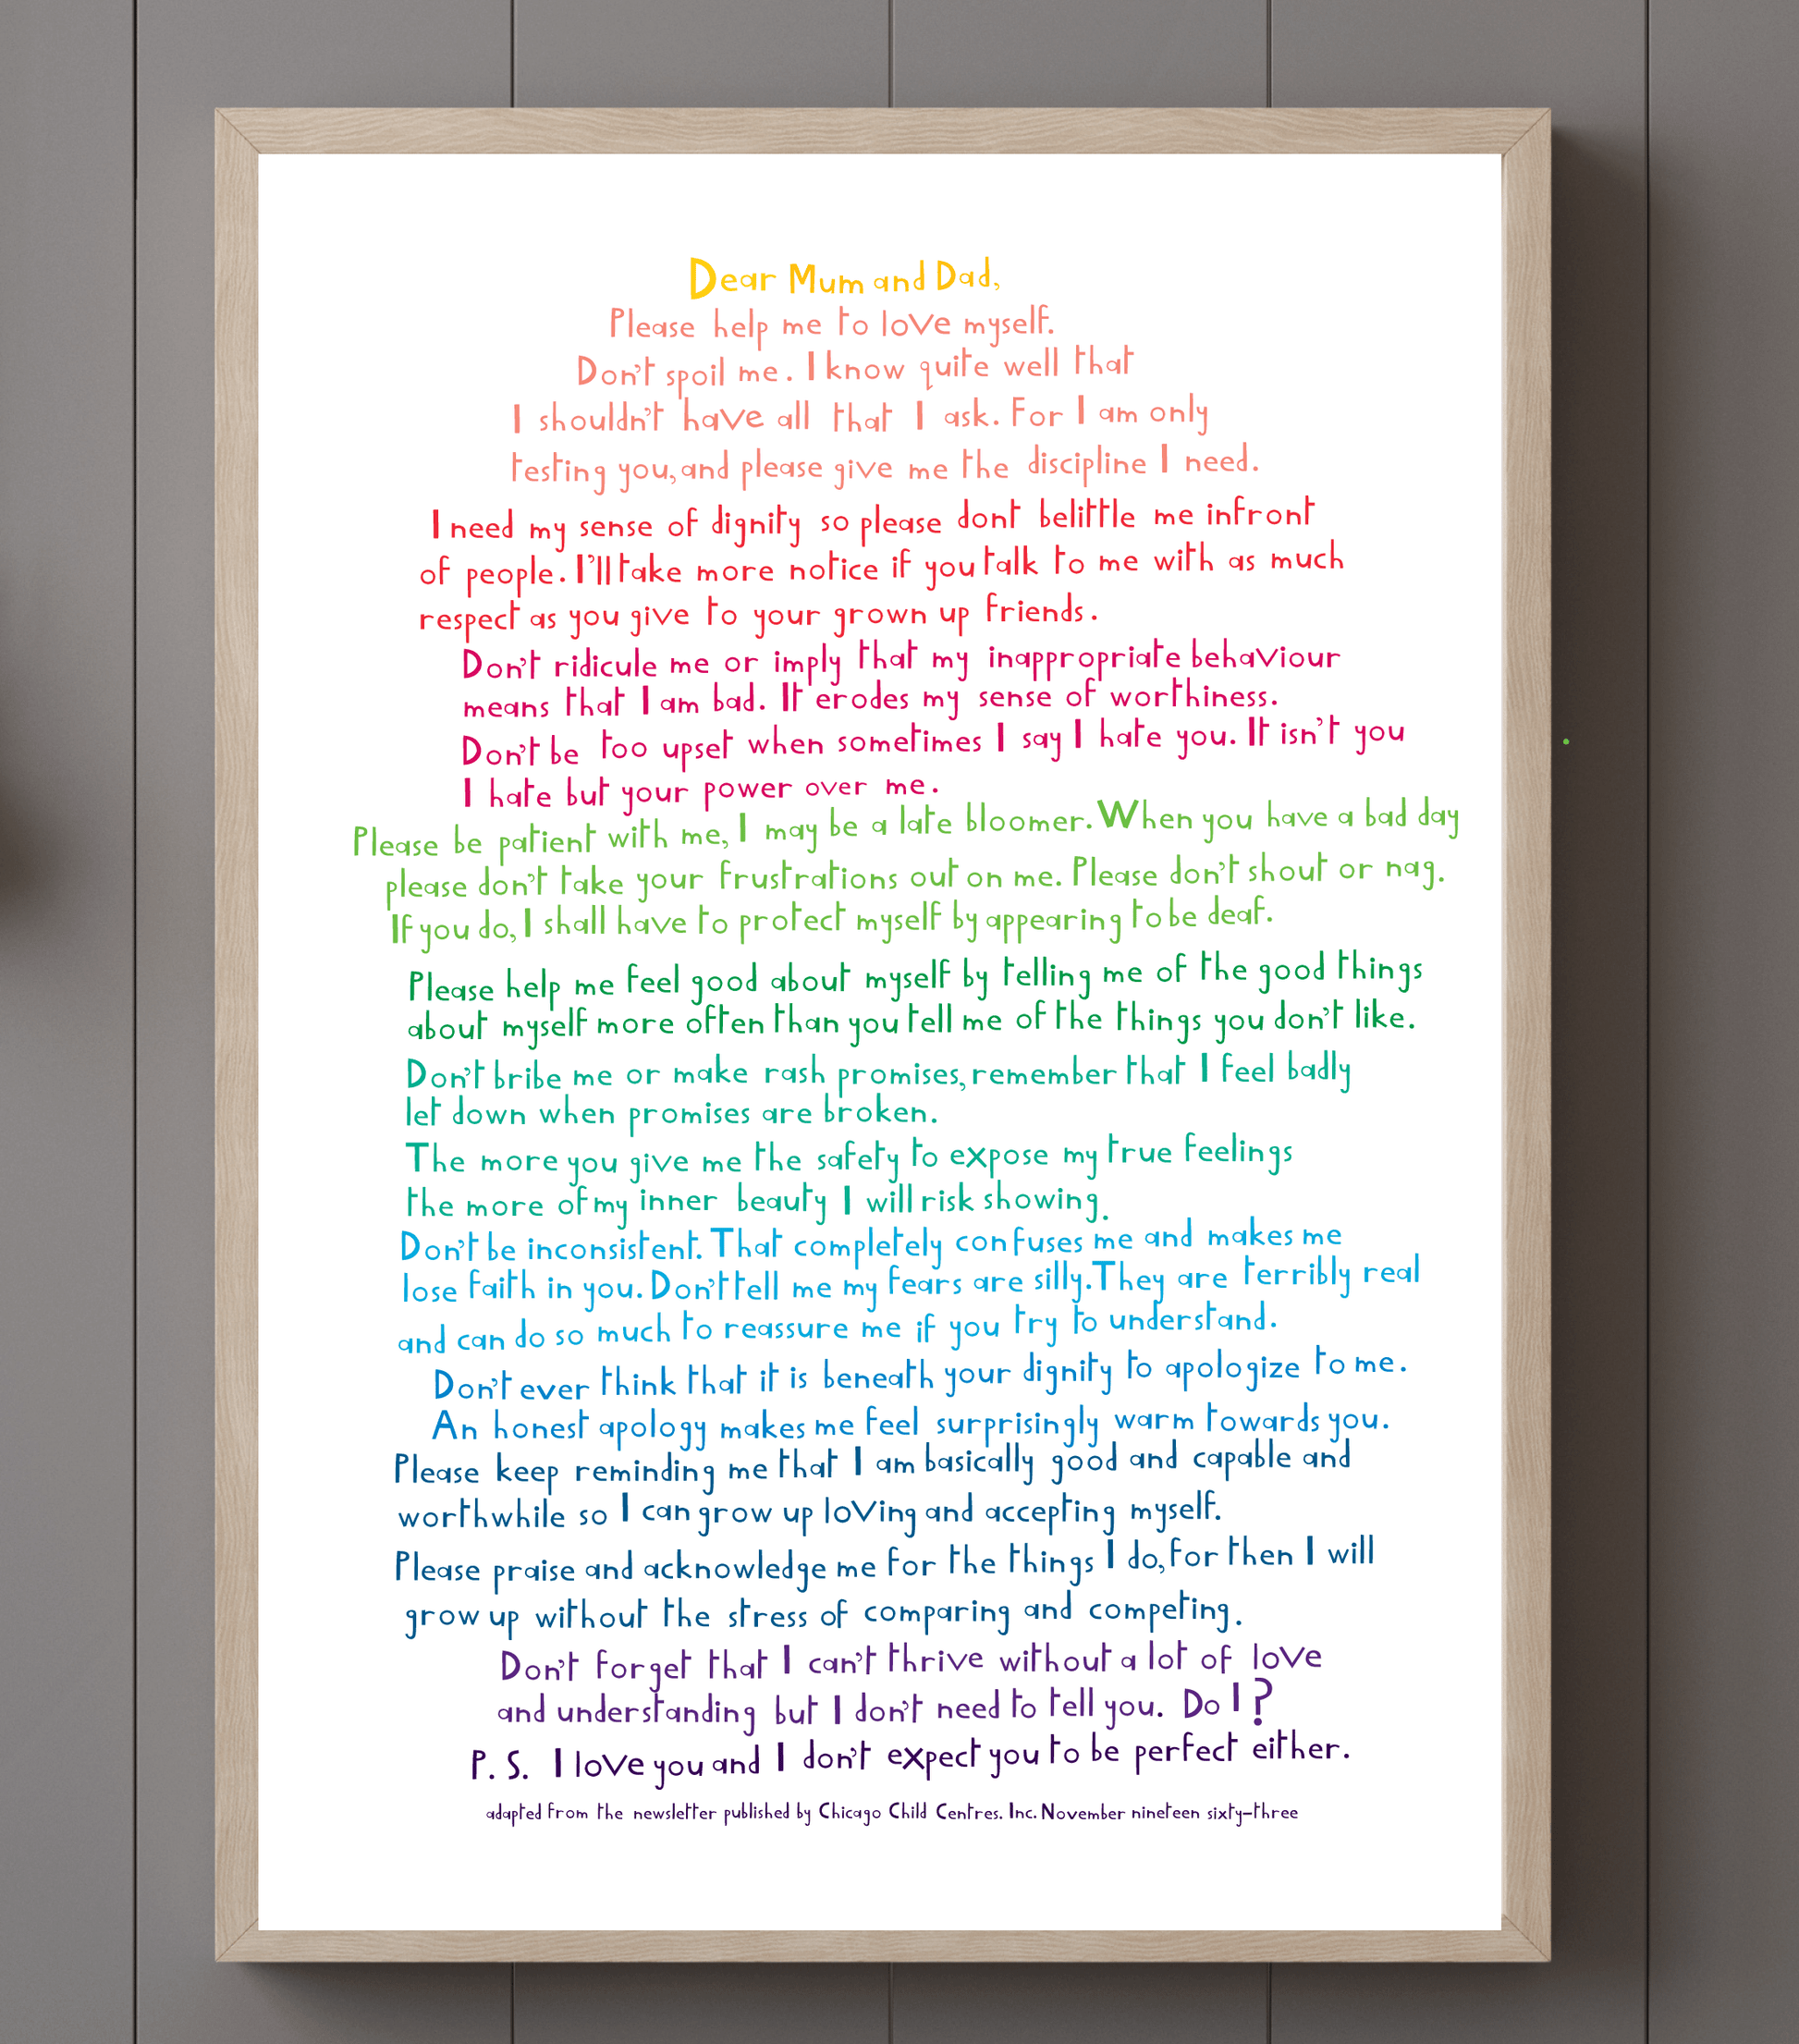 Dear Mum and Dad,
Please help me to love myself.
Don't spoil me. I know quite well that
I shouldn't have all that I ask. For I am only
testing you, and please give me the discipline I need.
I need my sense of dignity so please dont belittle me infront
of people. I'll take more notice if you talk to me with as much
respect as you give to your grown up friends.
Don't ridicule me or imply that my inappropriate behaviour
means that I am bad. It erodes my sense of worthiness.
Don't be too upset when sometimes I say I hate you. It isn't you
I hate but your power over me.
Please be patient with me, I may be a late bloomer. When you have a bad day
please don't take your frustrations out on me. Please don't shout or nag.
If you do, I shall have to protect myself by appearing to be deaf.
Please help me feel good about myself by telling me of the good things
about myself more often than you tell me of the things you don't like.
Don't bribe me or make rash promises, remember that I feel badly
let down when promises are broken.
The more you give me the safety to expose my true feelings
the more of my inner beauty I will risk showing.
Don't be inconsistent. That completely confuses me and makes me
lose faith in you. Don't tell me my fears are silly. They are terribly real
and can do so much to reassure me if you try to understand.
Don't ever think that it is beneath your dignity to apologize to me.
An honest apology makes me feel surprisingly warm towards you.
Please keep reminding me that I am basically good and capable and
worthwhile so I can grow up loving and accepting myself.
Please praise and acknowledge me for the things I do, for then I will
grow up without the stress of comparing and competing.
Don't forget that I can't thrive without a lot of love
and understanding but I don't need to tell you. Do I?
P. S. I love you and I don't expect you to be perfect either.
adapted from the newsletter published by Chicago Child Centres. Inc. November nineteen sixty-three